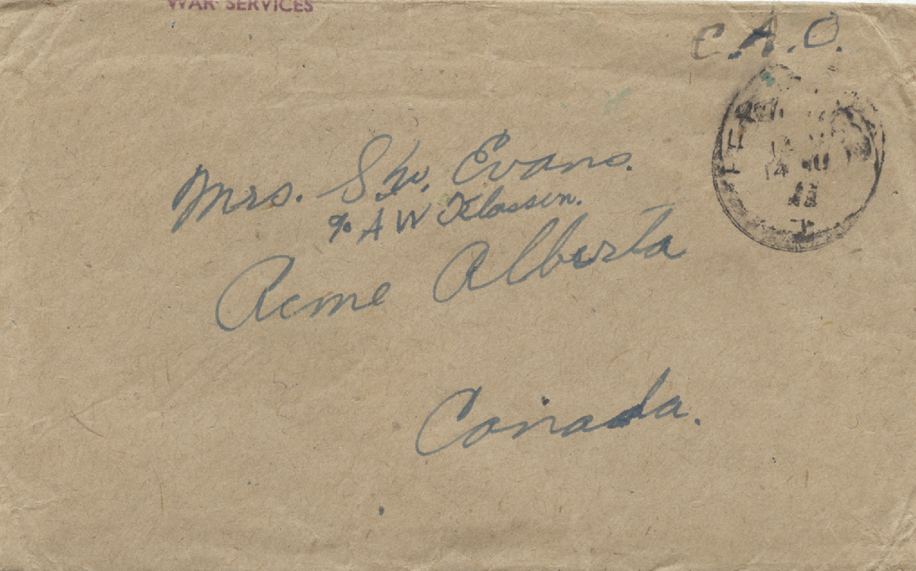 WAR SERVICES
C.A.O.
Mrs. Evans.
c/o A W Klassen.
Acme Alberta
Canada.